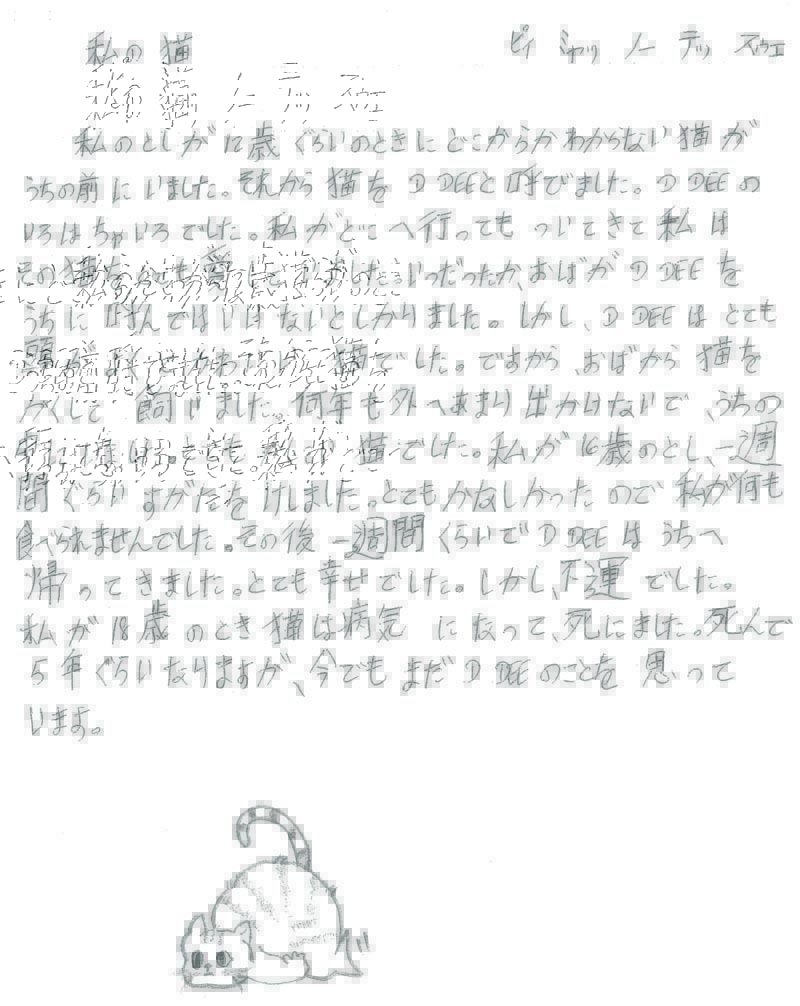 私の猫 ピィ ミャッ ノー テッ スウェ
私のとしが12歳ぐらいのときにどこからかわからない猫が
うちの前にいました。それから猫をD DEEと呼びました。D DEEの
いろはちゃいろでした。私がどこへ行ってもついてきて私は
その猫を いつだったか、おばがD DEEを
うちに 住んではいけないとしかりました。しかし、D DEEはとても
頭が 猫でした。ですから、おばから猫を
かくして飼いました。何年も外へあまり出かけないで、うちの
猫でした。私が16歳のとし、一週
間ぐらいすがたをけしました。とてもかなしかったので私が何も
食べられませんでした。その後一週間くらいでD DEEはうちへ
帰ってきました。とても幸せでした。しかし、不運でした。
私が18歳のとき猫は病気になって、死にました。死んで
5年ぐらいなりますが、今でもまだD DEEのことを思って
います。